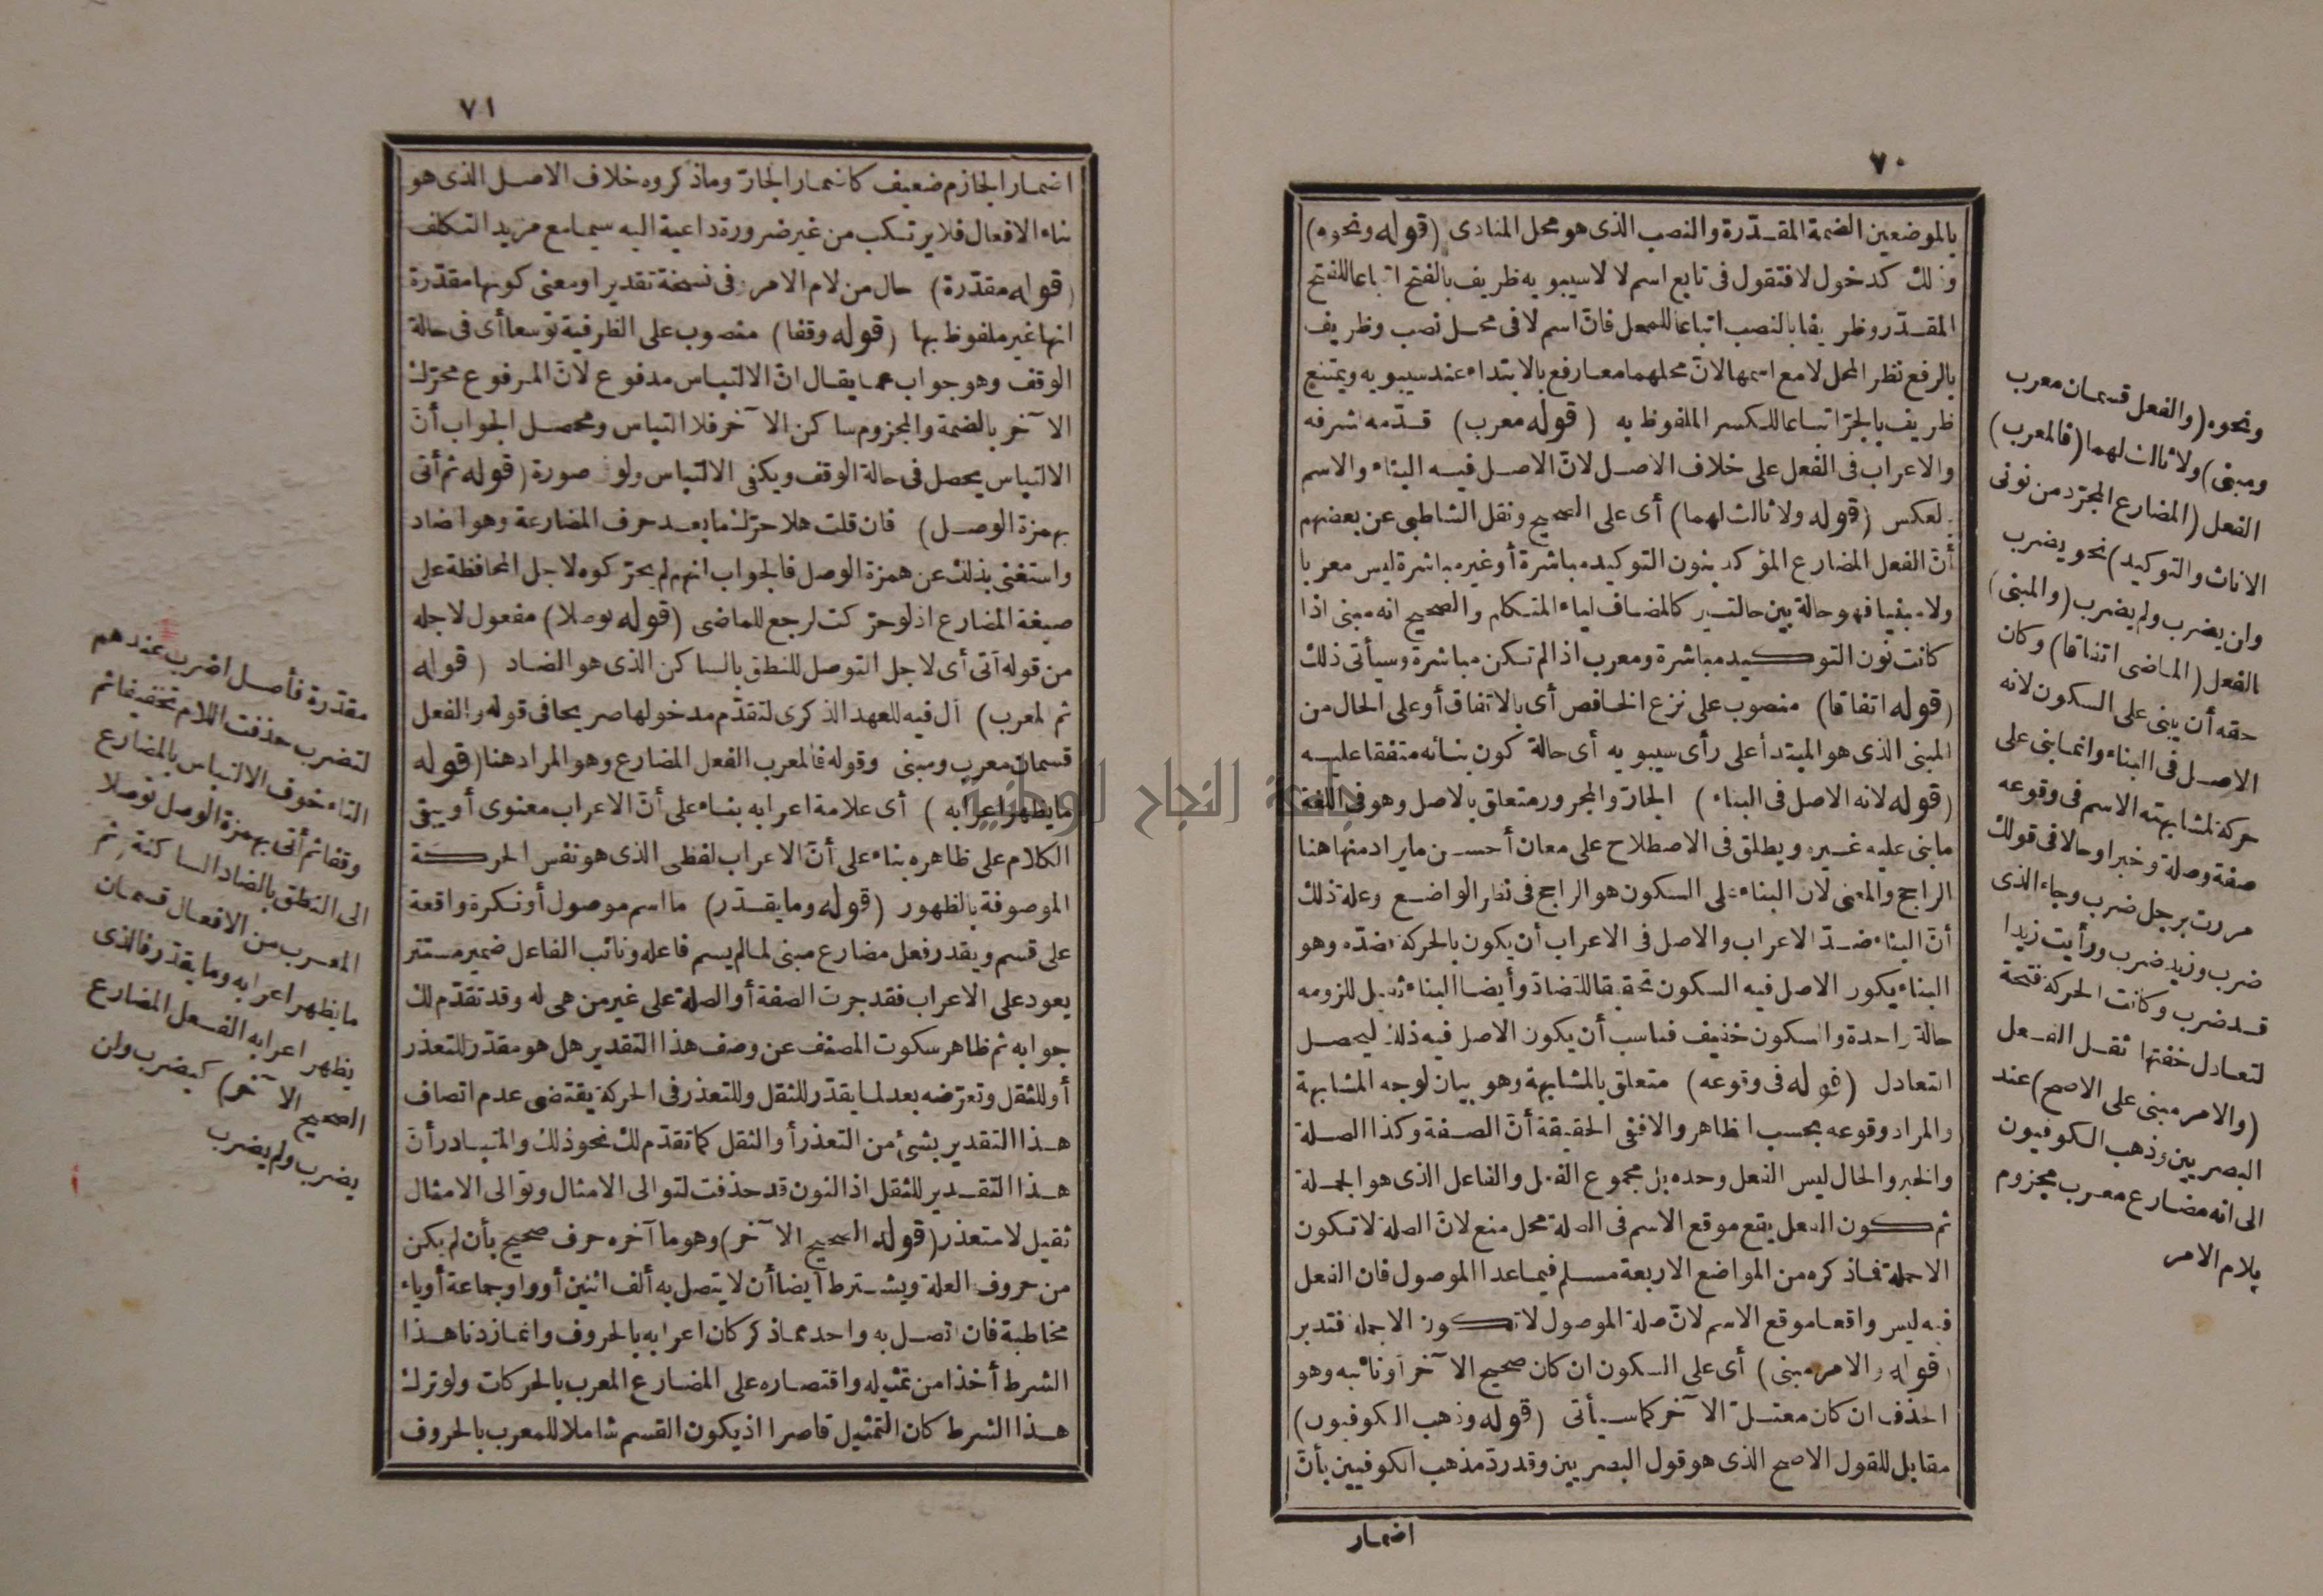 ٧٠
بالموضعين الضمة المقدّرة والنصب الذى هو محل المنادى (قوله ونحوه)
وذلك كدخول لا فتقول فى تابع اسم لا لا سيبويه ظريف بالفتح اتباعا للفتح
المقدّر وظريفا بالنصب اتباعا للمحل فانّ اسم لا فى محل نصب وظريف
بالرفع نظر المحل لا مع اسمها لانّ محلهما معا رفع بالابتداء عند سيبويه ويمتنع
ظريف بالجرّ اتباعا للكسر الملفوظ به (قوله معرب) قدّمه لشرفه
والاعراب فى الفعل على خلاف الاصل لانّ الاصل فيه البناء والاسم
بالعكس (قوله ولا ثالث لهما) أى على الصحيح ونقل الشاطبى عن بعضهم
أنّ الفعل المضارع المؤكد بنون التوكيد مباشرة أو غير مباشرة ليس معربا
ولا مبنيا فهو حالة بين حالتين كالمضاف لياء المتكلم والصحيح انه مبنى اذا
كانت نون التوكيد مباشرة ومعرب اذا لم تكن مباشرة وسيأتى ذلك
(قوله اتفاقا) منصوب على نزع الخافض أى بالاتفاق أو على الحال من
المبنى الذى هو المبتدأ على رأى سيبويه أى حالة كون بنائه متفقا عليه
(قوله لانه الاصل فى البناء) الجارّ والمجرور متعلق بالاصل وهو فى اللغة
ما بنى عليه غيره ويطلق فى الاصطلاح على معان أحسن ما يراد منها هنا
الراجح والمعنى لان البناء على السكون هو الراجح فى نظر الواضع وعلة ذلك
أنّ البناء ضدّ الاعراب والاصل فى الاعراب أن يكون بالحركة فضدّه وهو
البناء يكون الاصل فيه السكون تحقيقا للتضادّ وأيضا البناء ثقيل للزومه
حالة واحدة والسكون خفيف فناسب أن يكون الاصل فيه ذلك ليحصل
التعادل (قوله فى وقوعه) متعلق بالمشابهة وهو بيان لوجه المشابهة
والمراد وقوعه بحسب الظاهر والا ففى الحقيقة أنّ الصفة وكذا الصلة
والخبر والحال ليس الفعل وحده بل مجموع الفعل والفاعل الذى هو الجملة
ثم كون الفعل يقع موقع الاسم فى الصلة محل منع لانّ الصلة لا تكون
الا جملة فما ذكره من المواضع الاربعة مسلم فيما عدا الموصول فان الفعل
فيه ليس واقعا موقع الاسم لانّ صلة الموصول لا تكون الا جملة فتدبر
(قوله والامر مبنى) أى على السكون ان كان صحيح الآخر أو نائبه وهو
الحذف ان كان معتلّ الآخر كما سيأتى (قوله وذهب الكوفيون)
مقابل للقول الاصح الذى هو قول البصريين وقد ردّ مذهب الكوفيين بأنّ
اضمار
ونحوه (والفعل قسمان معرب
ومبنى) ولا ثالث لهما (فالمعرب)
الفعل (المضارع المجرّد من نونى
الاناث والتوكيد) نحو يضرب
وان يضرب ولم يضرب (والمبنى)
الفعل (الماضى اتفاقا) وكان
حقه أن يبنى على السكون لانه
الاصل فى البناء وانما بنى على
حركة لمشابهته الاسم فى وقوعه
صفة وصلة وخبرا وحالا فى قولك
مررت برجل ضرب وجاء الذى
ضرب وزيد ضرب ورأيت زيدا
قد ضرب وكانت الحركة فتحة
لتعادل خفتها ثقل الفعل
(والامر مبنى على الاصح) عند
البصريين وذهب الكوفيون
الى انه مضارع معرب مجزوم
بلام الامر
٧١
اضمار الجازم ضعيف كاضمار الجارّ وما ذكروه خلاف الاصل الذى هو
بناء الافعال فلا يرتكب من غير ضرورة داعية اليه سيما مع مزيد التكلف
(قوله مقدّرة) حال من لام الامر وفى نسخة تقديرا ومعنى كونها مقدّرة
انها غير ملفوظ بها (قوله وقفا) منصوب على الظرفية توسعا أى فى حالة
الوقف وهو جواب عما يقال انّ الالتباس مدفوع لانّ المرفوع محرّك
الآخر بالضمة والمجزوم ساكن الآخر فلا التباس ومحصل الجواب أنّ
الالتباس يحصل فى حالة الوقف ويكفى الالتباس ولو فى صورة (قوله ثم أتى
بهمزة الوصل) فان قلت هلا حرّك ما بعد حرف المضارعة وهو الضاد
واستغنى بذلك عن همزة الوصل فالجواب انهم لم يحرّكوه لاجل المحافظة على
صيغة المضارع اذ لو حرّكت لرجع للماضى (قوله توصلا) مفعول لاجله
من قوله أتى أى لاجل التوصل للنطق بالساكن الذى هو الضاد (قوله
ثم المعرب) أل فيه للعهد الذكرى لتقدّم مدخولها صريحا فى قوله والفعل
قسمان معرب ومبنى وقوله فالمعرب الفعل المضارع وهو المراد هنا (قوله
ما يظهر اعرابه) أى علامة اعرابه بناء على أنّ الاعراب معنوى أو يبقى
الكلام على ظاهره بناء على أنّ الاعراب لفظى الذى هو نفس الحركة
الموصوفة بالظهور (قوله وما يقدّر) ما اسم موصول أو نكرة واقعة
على قسم ويقدر فعل مضارع مبنى لما لم يسم فاعله ونائب الفاعل ضمير مستتر
يعود على الاعراب فقد جرت الصفة أو الصلة على غير من هى له وقد تقدّم لك
جوابه ثم ظاهر سكوت المصنف عن وصف هذا التقدير هل هو مقدّر للتعذر
أو للثقل وتعرّضه بعد لما يقدّر للثقل وللتعذر فى الحركة يقتضى عدم اتصاف
هذا التقدير بشئ من التعذر أو الثقل كما تقدّم لك نحو ذلك والمتبادر أنّ
هذا التقدير للثقل اذ النون قد حذفت لتوالى الامثال وتوالى الامثال
ثقيل لا متعذر (قوله الصحيح الآخر) وهو ما آخره حرف صحيح بأن لم يكن
من حروف العلة ويشترط أيضا أن لا يتصل به ألف اثنين أو واو جماعة أو ياء
مخاطبة فان اتصل به واحد مما ذكر كان اعرابه بالحروف وانما زدنا هذا
الشرط أخذا من تمثيله واقتصاره على المضارع المعرب بالحركات ولو ترك
هذا الشرط كان التمثيل قاصرا اذ يكون القسم شاملا للمعرب بالحروف
مقدّرة فأصل اضرب عندهم
لتضرب حذفت اللام تخفيفا ثم
التاء خوف الالتباس بالمضارع
وقفا ثم أتى بهمزة الوصل توصلا
الى النطق بالضاد الساكنة ثم
المعرب من الافعال قسمان
ما يظهر اعرابه وما يقدّر فالذى
يظهر اعرابه الفعل المضارع
الصحيح الآخر) كيضرب ولن
يضرب ولم يضرب
جامعة النجاح الوطنية